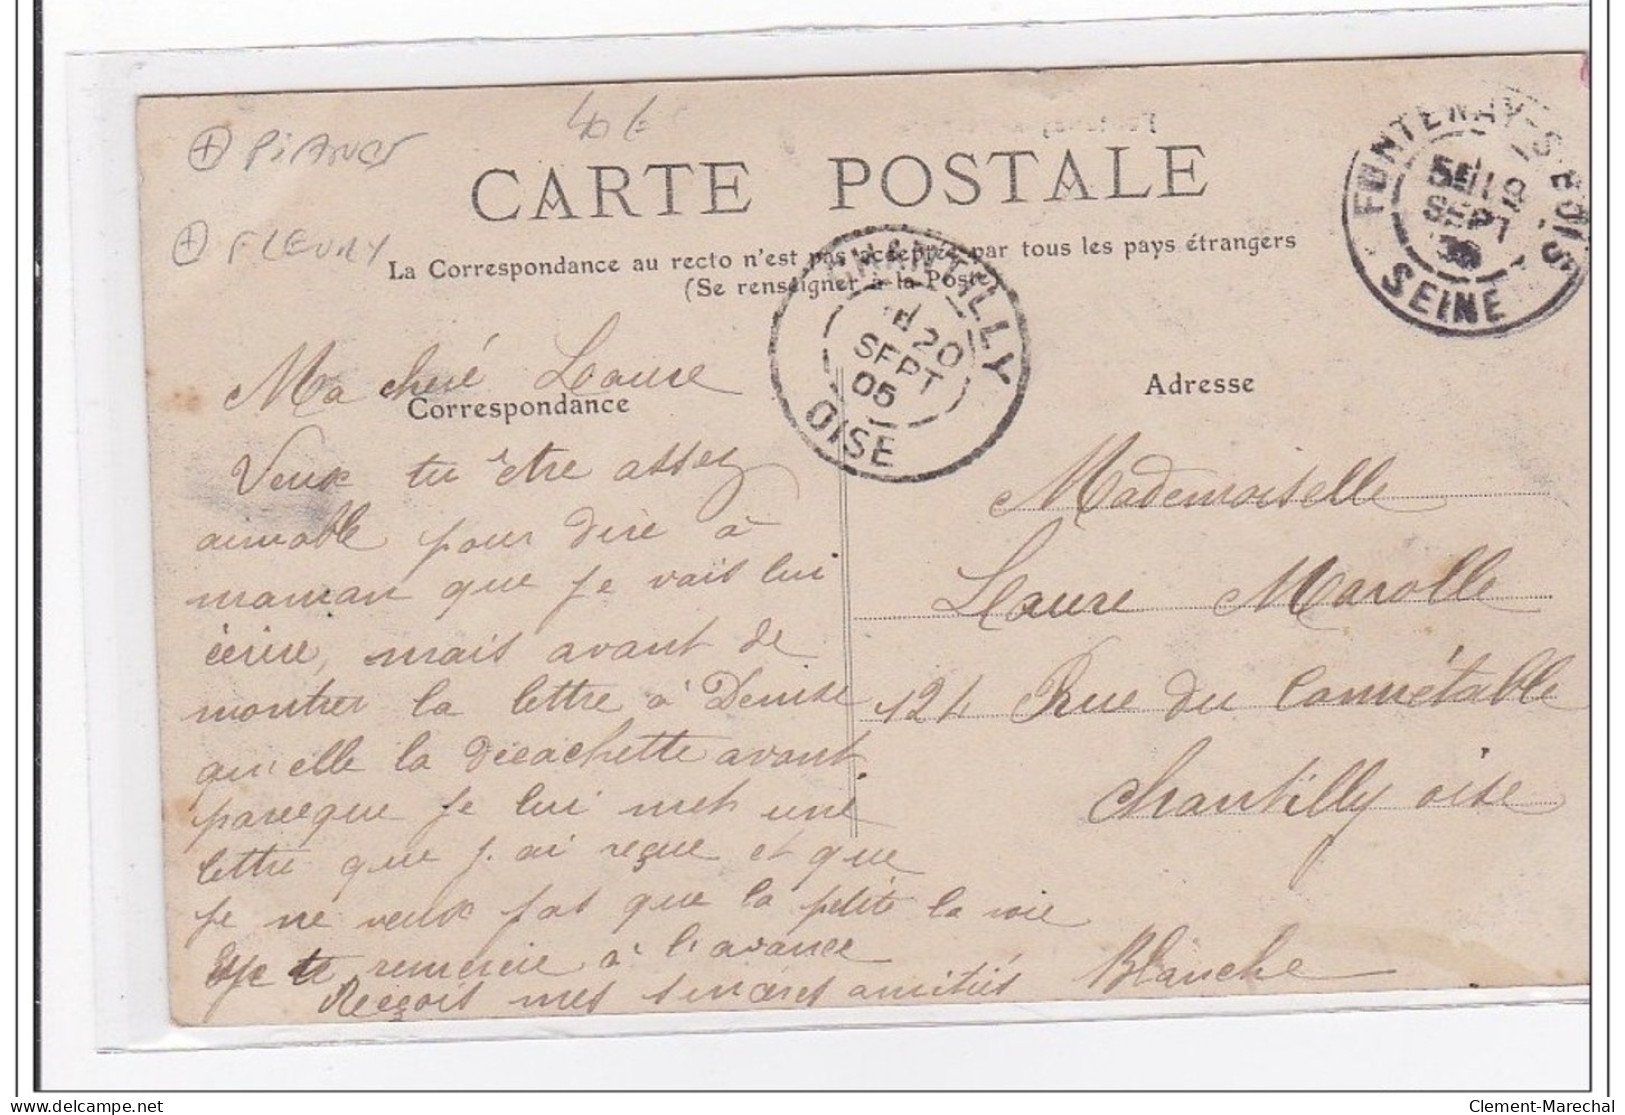 PiANOS
40 €
FLEURY
CARTE POSTALE
La Correspondance au recto n'est pas acceptée par tous les pays étrangers
(Se renseigner à la Poste)
FONTENAY-S-BOIS
SEPT
SEINE
CHANTILLY
20
SEPT
05
OISE
Correspondance
Adresse
Ma cheré Laure
Veux tu être assez
aimable pour dire à
maman que je vais lui
écrire, mais avant de
montrer la lettre à Denise
qu'elle la décachette avant
parceque je lui met une
lettre que j'ai reçue et que
je ne veux pas que la petite la voie
Je te remercie à l'avance
Reçois mes sincères amitiés Blanche
Mademoiselle
Laure Marolle
124 Rue du Connétable
Chantilly oise
Clement-Marechal